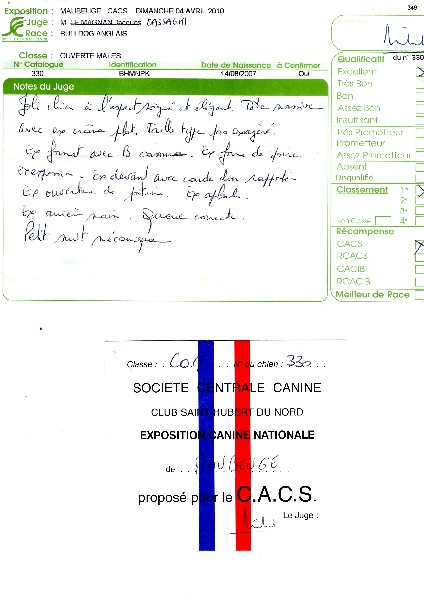 349
Exposition : MAUBEUGE CACS DIMANCHE 04 AVRIL 2010
Juge : M. LE MAGNAN Jacques CASSAGNI
Race : BULLDOG ANGLAIS
Classe : OUVERTE MALES
N° Catalogue Identification Date de Naissance à Confirmer
330 BHMNPK 14/08/2007 Oui
Notes du Juge
Joli chien à l'aspect soigné et élégant. Tête massive
avec ex crâne plat. Taille type pas exagéré.
Ex format avec B Ex forme de
expression. Ex devant avec coude bien rapproché
Ex ouverture de poitrine. Ex aplomb.
Ex arrière main. Queue correcte.
Petit mécanique
Qualificatif du n° 330
Excellent
Très Bon
Bon
Assez Bon
Insuffisant
Très Prometteur
Prometteur
Assez Prometteur
Absent
Disqualifié
Classement 1°
2°
3°
Non Classé 4°
Récompense
CACS
RCACS
CACIB
RCACIB
Meilleur de Race
Classe : N° du chien : 330
SOCIETE CENTRALE CANINE
CLUB SAINT HUBERT DU NORD
EXPOSITION CANINE NATIONALE
de MAUBEUGE
proposé pour le C.A.C.S.
Le Juge :